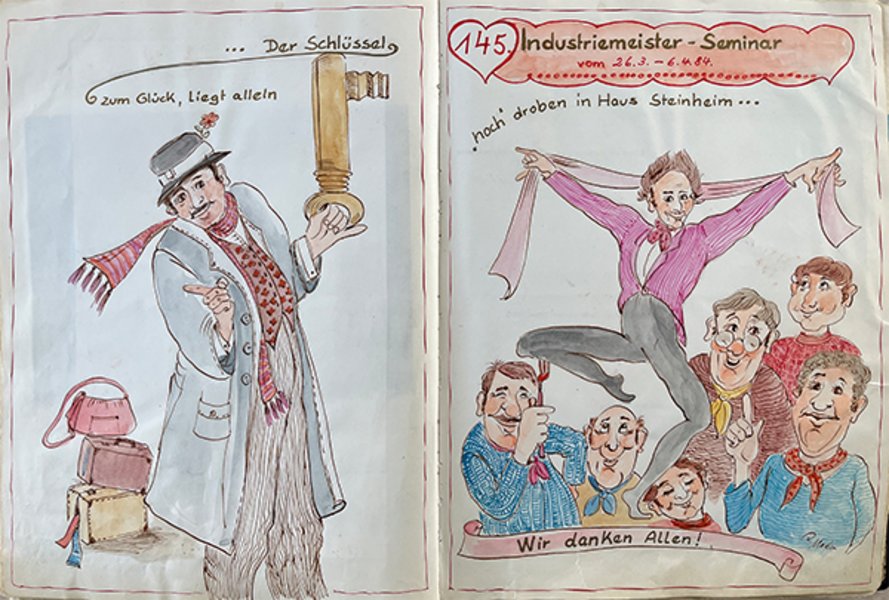 ... Der Schlüssel
zum Glück, liegt allein
145. Industriemeister - Seminar
vom 26.3. - 6.4.84.
"hoch" droben in Haus Steinheim ...
Wir danken Allen!